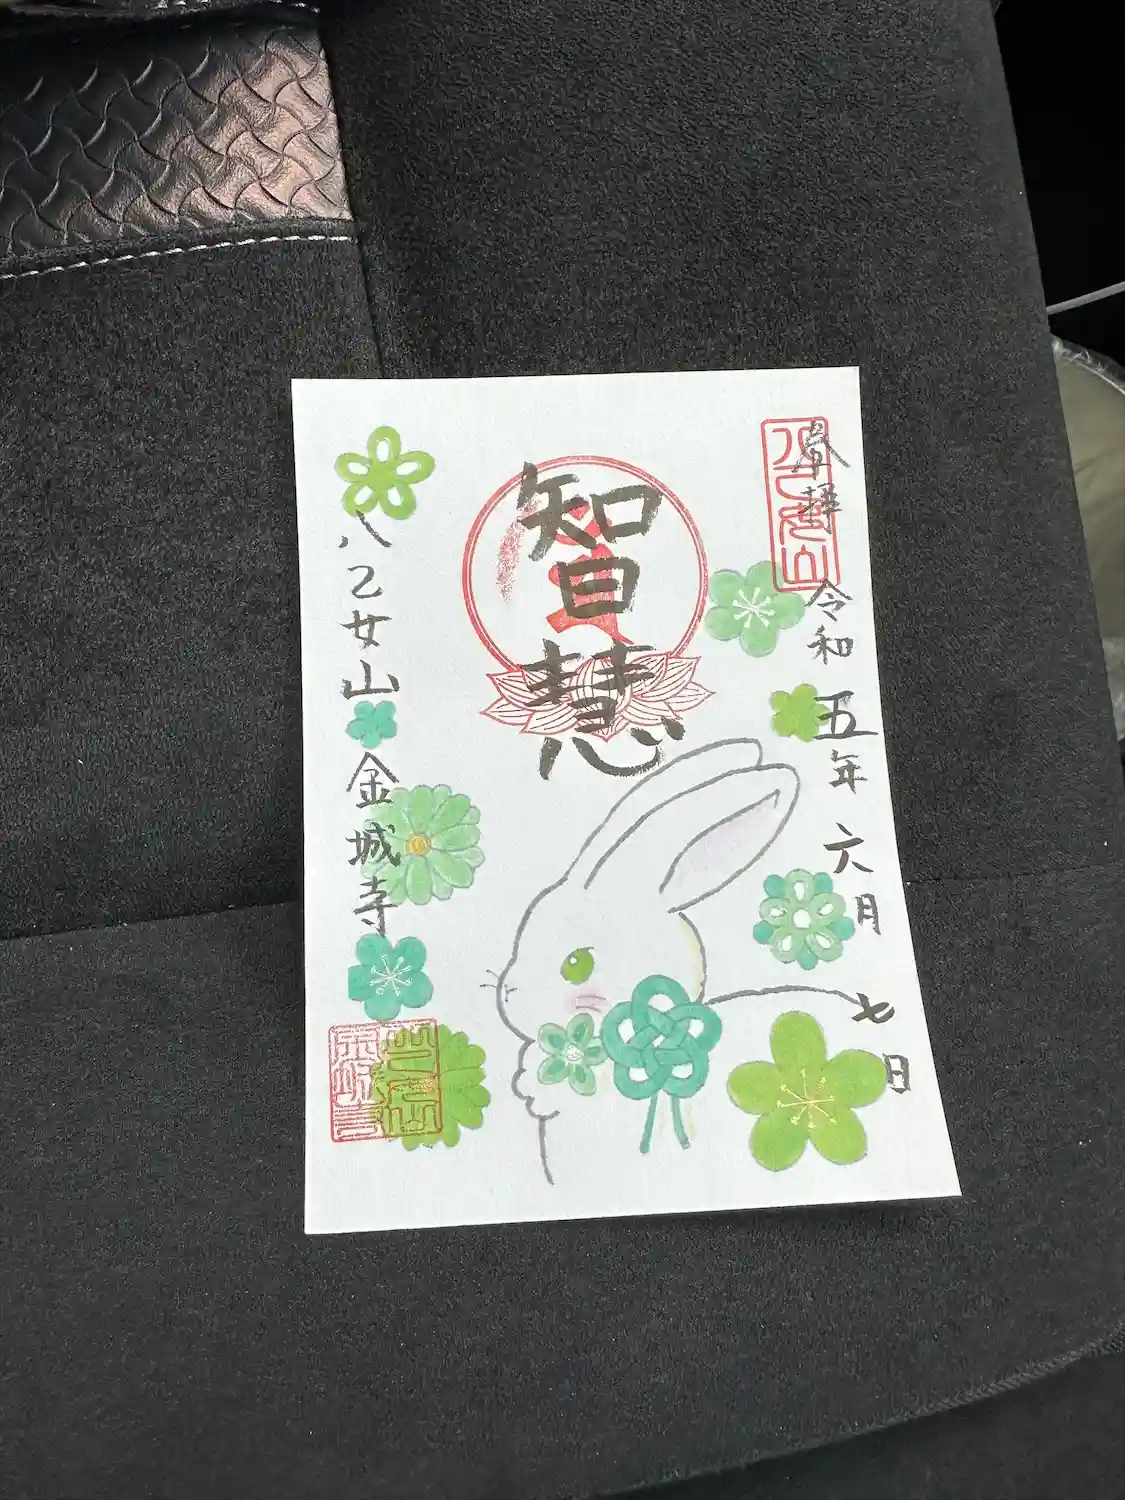 奉拝 令和五年六月七日
智慧
八乙女山金城寺